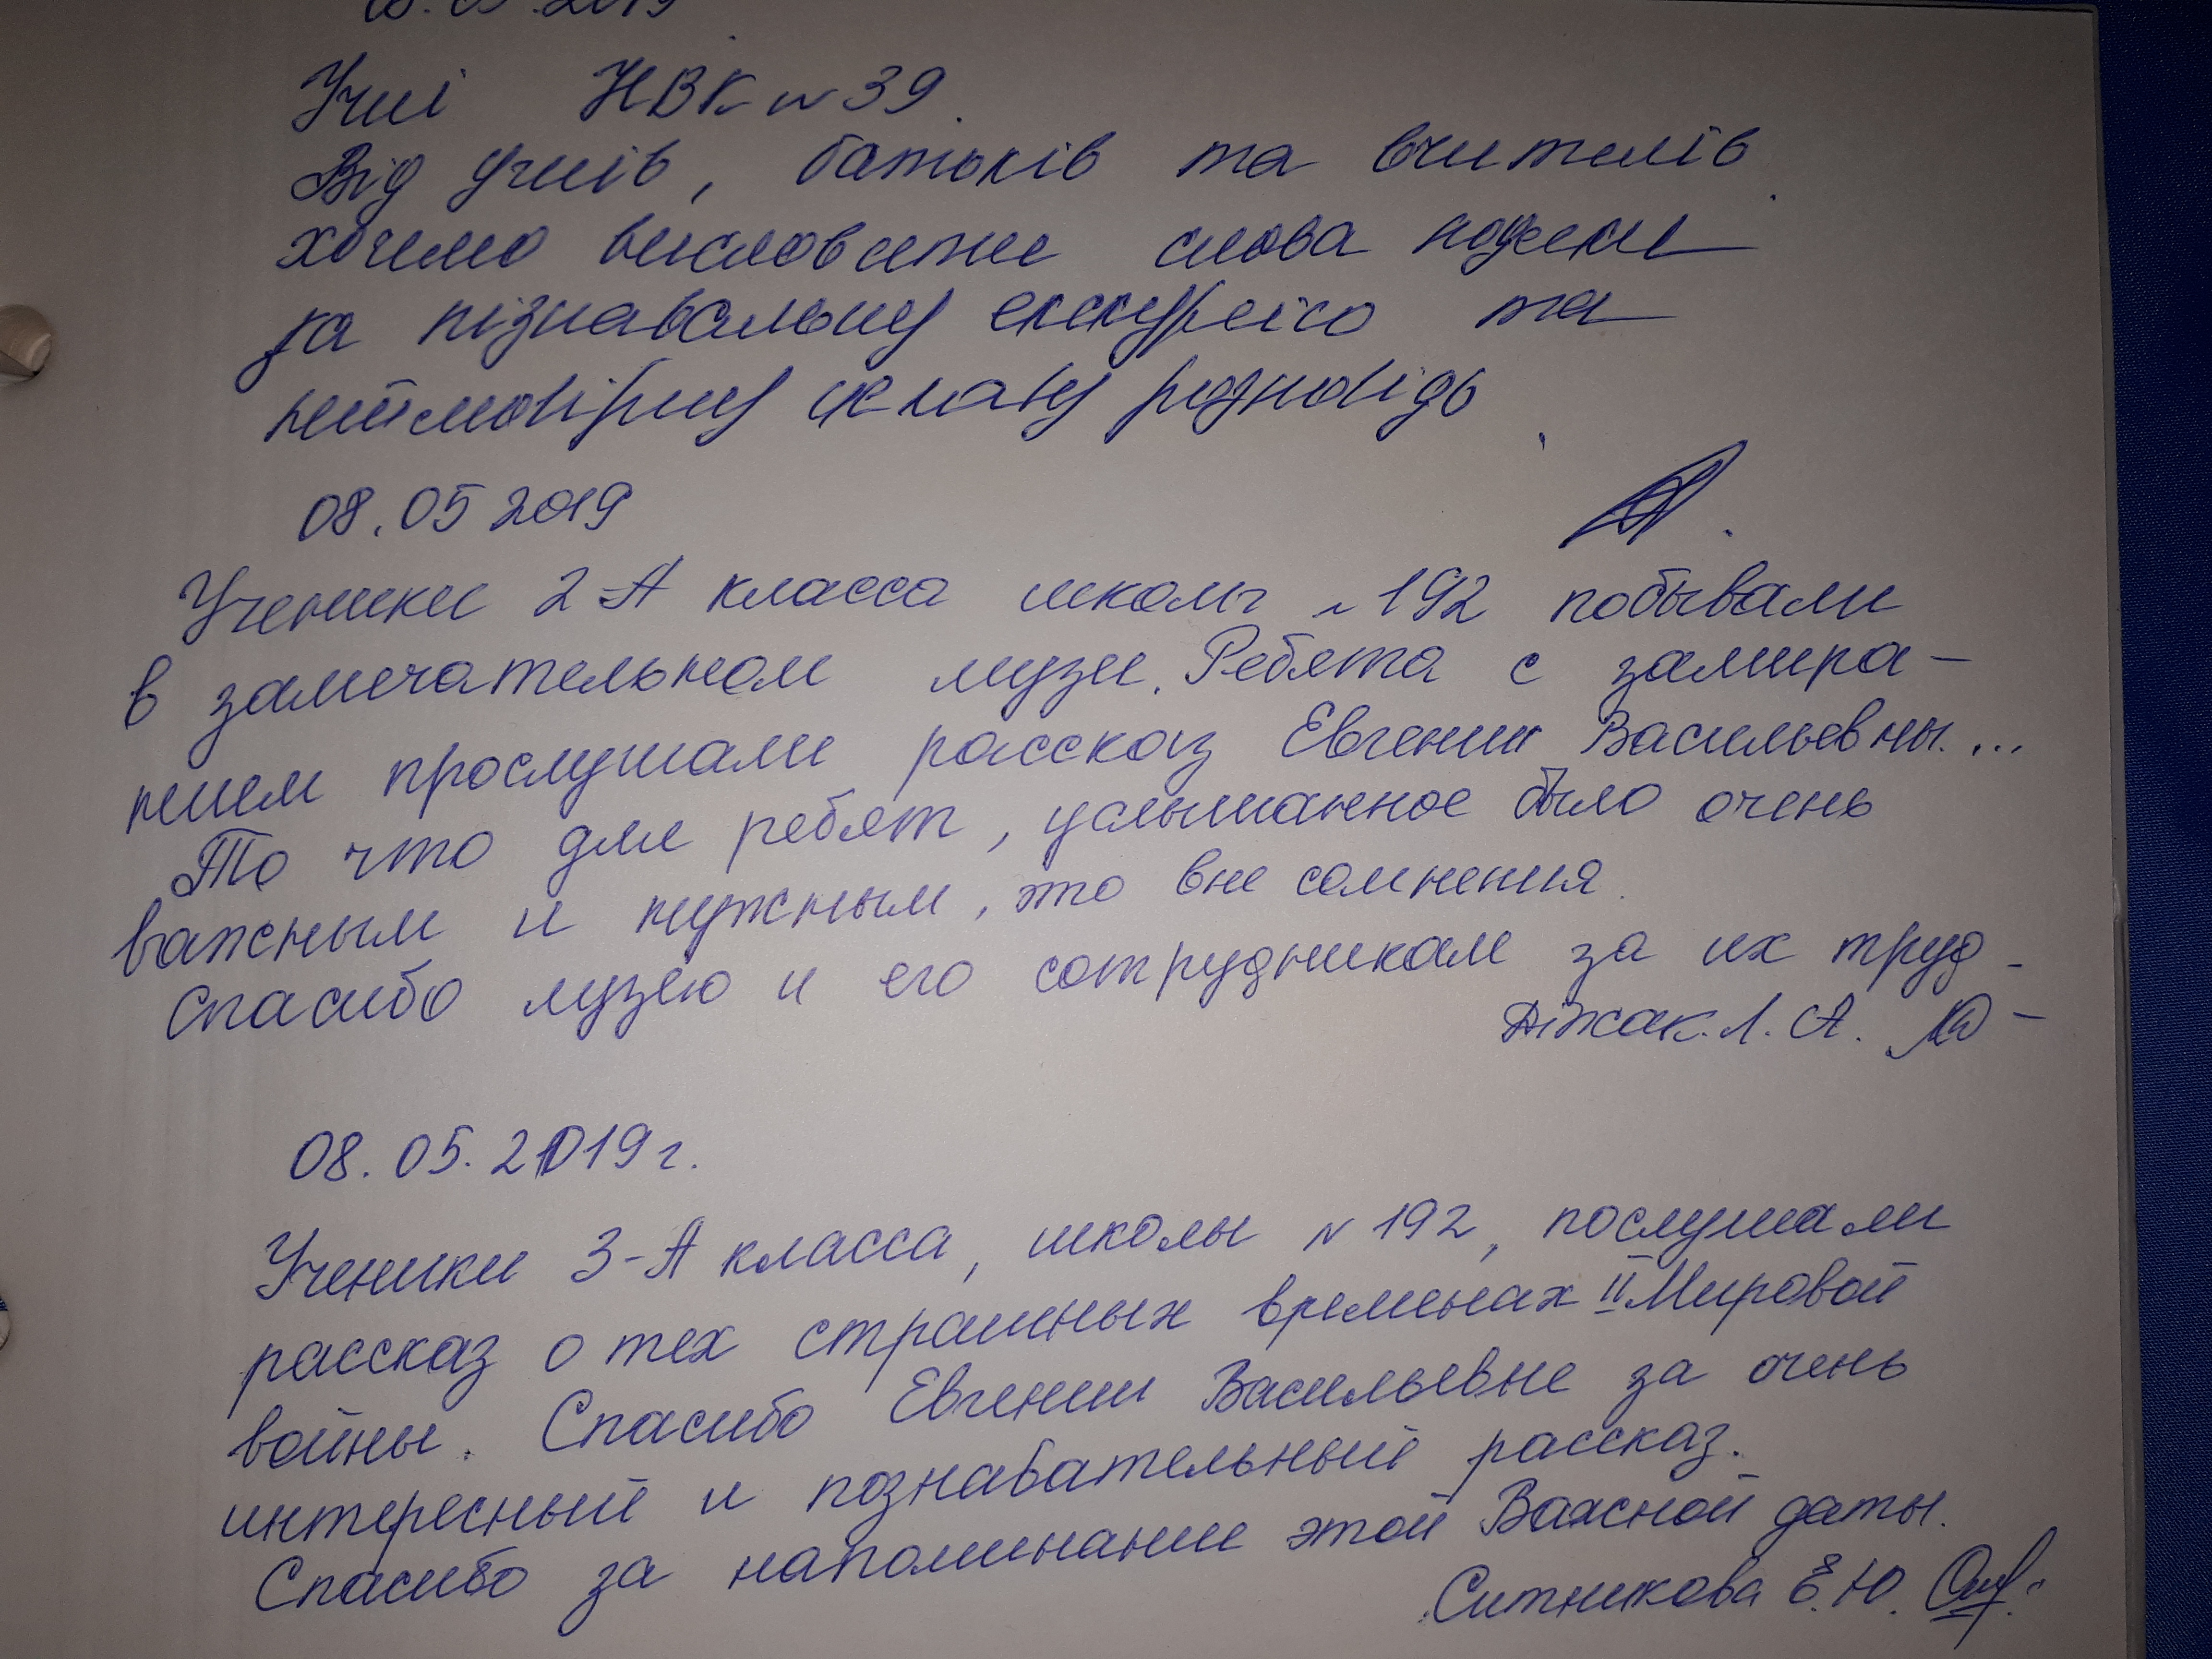 08.05.2019
Учні НВК №39.
Від учнів, батьків та вчителів
хочемо висловити слова подяки
за пізнавальну екскурсію та
неймовірну цікаву розповідь
08.05 2019
Ученики 2-А класса школы №192 побывали
в замечательном музеи. Ребята с замира-
нием прослушали рассказ Евгении Васильевны...
То что для ребят, услышанное было очень
важным и нужным, это вне сомнения.
Спасибо музею и его сотрудникам за их труд -
Л. А.
08.05.2019 г.
Ученики 3-А класса, школы №192, послушали
рассказ о тех страшных временах II Мировой
войны. Спасибо Евгении Васильевне за очень
интересный и познавательный рассказ.
Спасибо за напоминание этой Важной даты.
Ситникова Е.Ю.